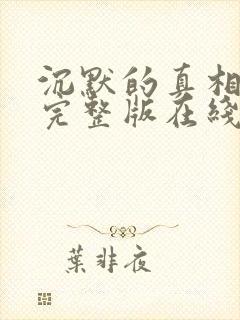 沉默的真相
完整版在綫
葉非夜